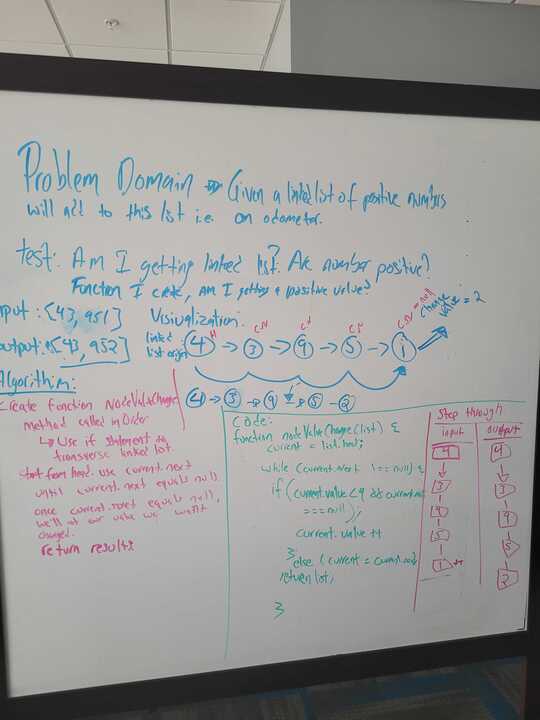 Problem Domain → Given a linked list of positive numbers
will add to this list i.e. an odometer.
test: Am I getting linked list? Are number positive?
Function I create, am I getting a positive value?
nput: [43,951]
output: [43,952]
Visiualization:
linked
list origin
4 → 3 → 9 → 5 → 1
H
C.N
C.N = null
change
value = 2
4 → 3 → 9 → 5 → 2
Algorithim:
Create function NodeValueChange
method called in Order
↳ Use if statement to
transverse linked list
start from head. use current.next
until current.next equals null
once current.next equals null,
we'll at our value we want
changed.
return results
Code:
function nodeValueChange(list) {
current = list.head;
while (current.next !== null) {
if (current.value < 9 && current.next
=== null);
current.value ++
}
else { current = current.next
return list;
}
Step through
input
4
3
9
5
1 ++
output
4
3
9
5
2